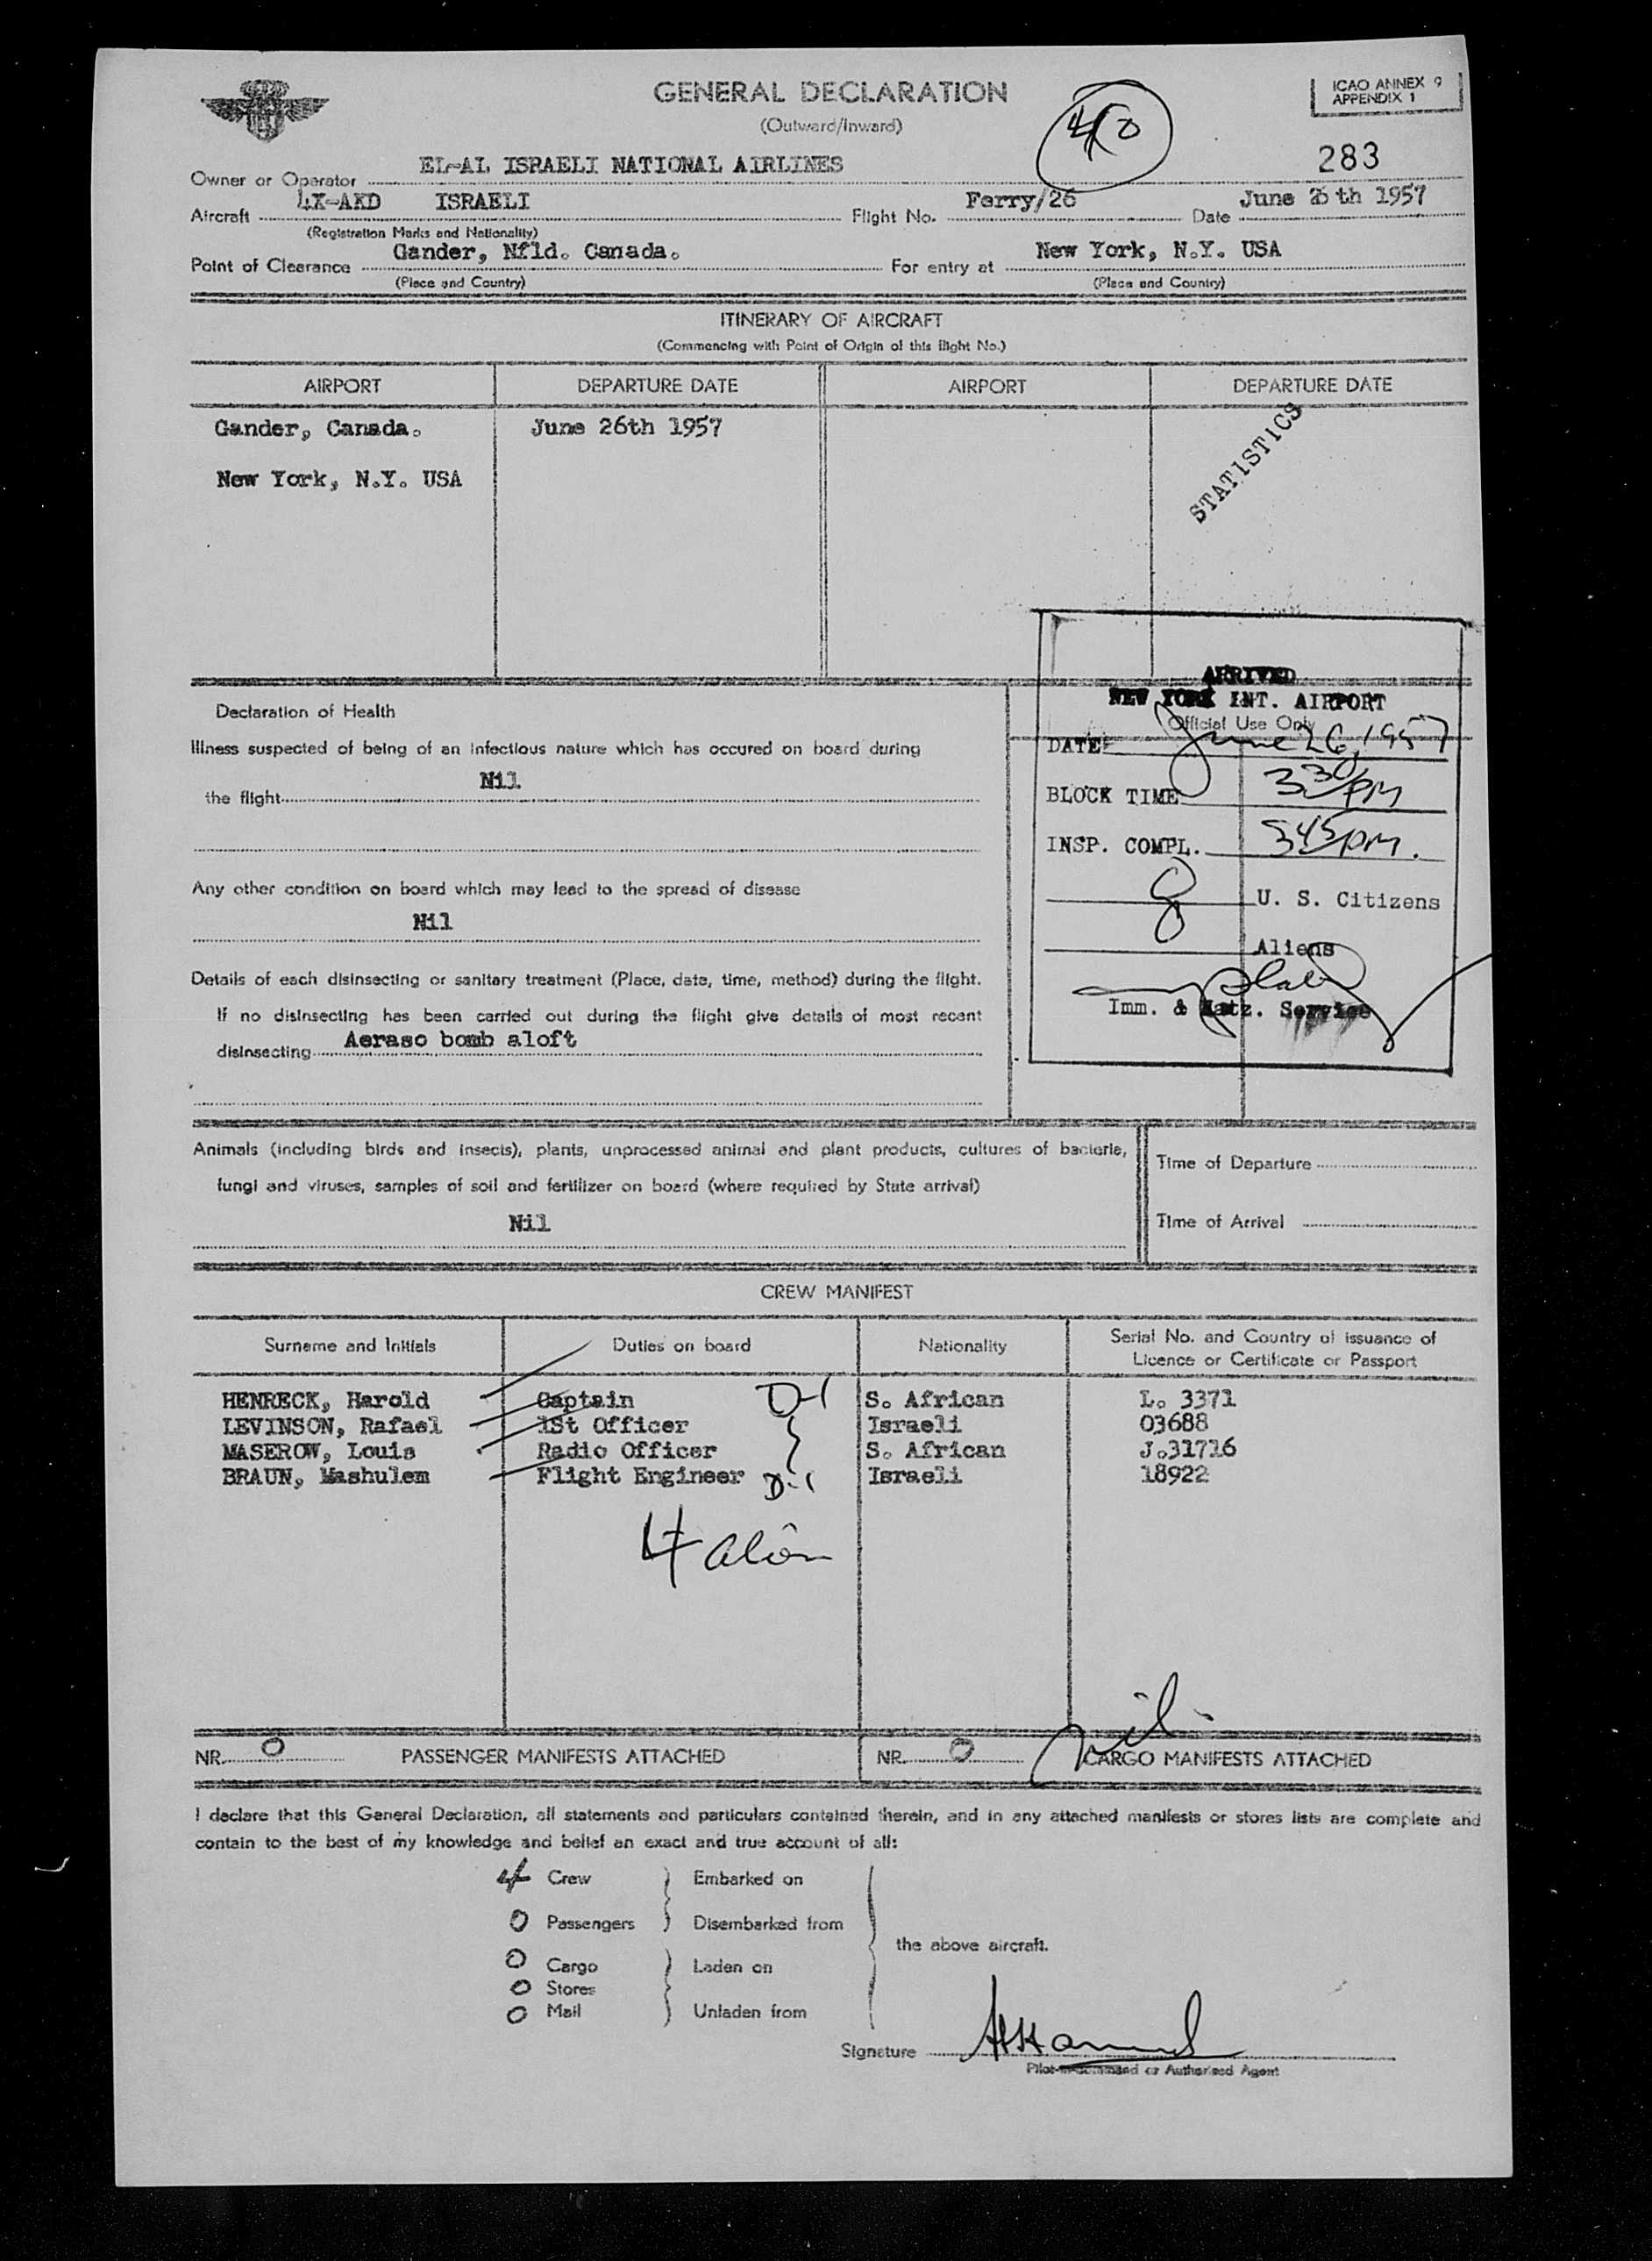 GENERAL DECLARATION
(Outward/Inward)
ICAO ANNEX 9
APPENDIX 1
4/0
283
Owner or Operator EL-AL ISRAELI NATIONAL AIRLINES
Aircraft 4X-AKD ISRAELI Flight No. Ferry/26 Date June 26th 1957
(Registration Marks and Nationality)
Point of Clearance Gander, Nfld. Canada. For entry at New York, N.Y. USA
(Place and Country) (Place and Country)
ITINERARY OF AIRCRAFT
(Commencing with Point of Origin of this flight No.)
AIRPORT DEPARTURE DATE AIRPORT DEPARTURE DATE
Gander, Canada. June 26th 1957
New York, N.Y. USA
STATISTICS
ARRIVED
NEW YORK INT. AIRPORT
Official Use Only
DATE June 26, 1957
BLOCK TIME 330 PM
INSP. COMPL. 345 PM.
U. S. Citizens
Aliens
Imm. & Natz. Service
Declaration of Health
Illness suspected of being of an infectious nature which has occured on board during
the flight Nil
Any other condition on board which may lead to the spread of disease
Nil
Details of each disinsecting or sanitary treatment (Place, date, time, method) during the flight.
If no disinsecting has been carried out during the flight give details of most recent
disinsecting Aeraso bomb aloft
Animals (including birds and insects), plants, unprocessed animal and plant products, cultures of bacteria,
fungi and viruses, samples of soil and fertilizer on board (where required by State arrival)
Nil
Time of Departure
Time of Arrival
CREW MANIFEST
Surname and Initials Duties on board Nationality Serial No. and Country of issuance of
Licence or Certificate or Passport
HENRECK, Harold Captain D-1 S. African L. 3371
LEVINSON, Rafael 1St Officer Israeli 03688
MASEROW, Louis Radio Officer S. African J.31716
BRAUN, Mashulem Flight Engineer D-1 Israeli 18922
4 alien
nil
NR. 0 PASSENGER MANIFESTS ATTACHED NR. 0 CARGO MANIFESTS ATTACHED
I declare that this General Declaration, all statements and particulars contained therein, and in any attached manifests or stores lists are complete and
contain to the best of my knowledge and belief an exact and true account of all:
4 Crew Embarked on
0 Passengers Disembarked from
the above aircraft.
0 Cargo Laden on
0 Stores
0 Mail Unladen from
Signature
Pilot-in-command or Authorised Agent